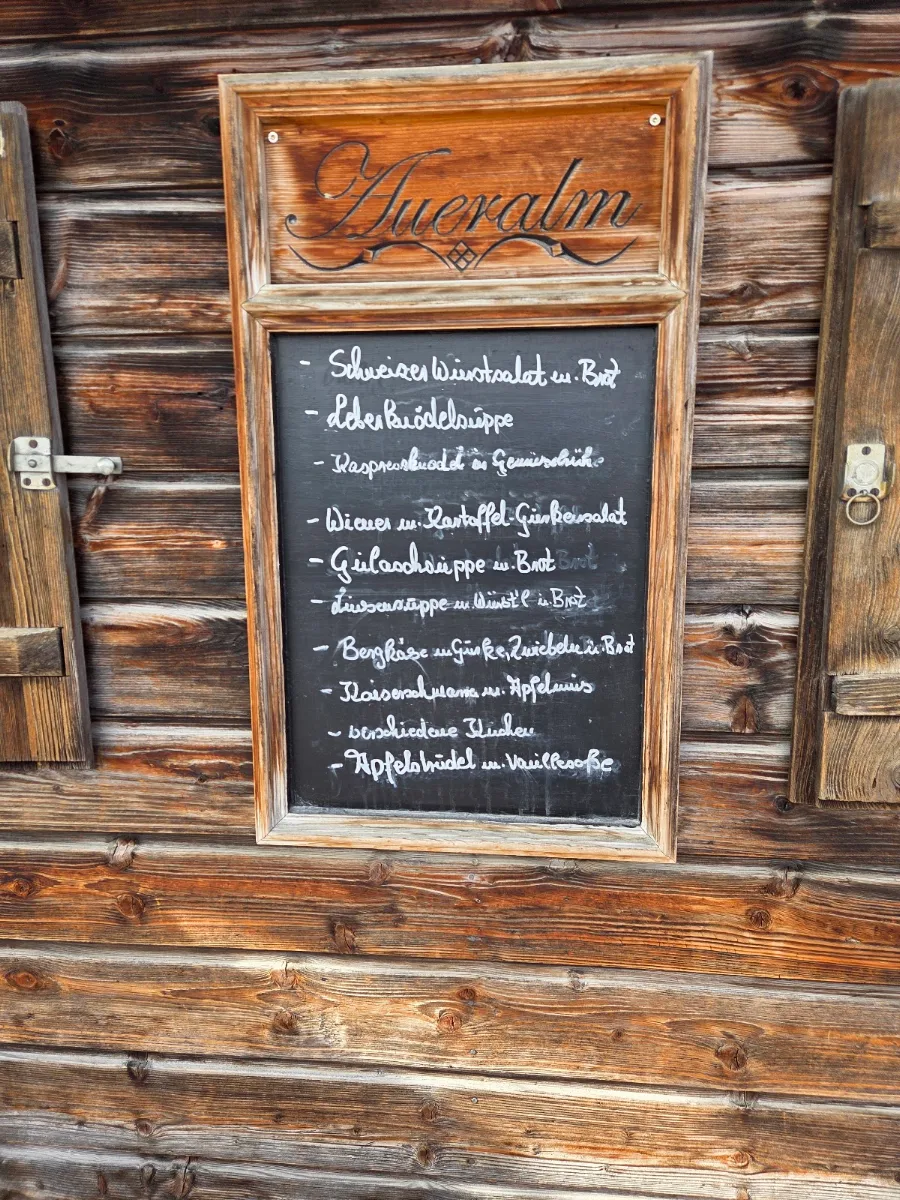 Aueralm
- Schweizer Wurstsalat m. Brot
- Leberknödelsuppe
- Kaspressknödel in Gemüsebrüh
- Wiener m. Kartoffel-Gurkensalat
- Gulaschsuppe m. Brot
- Linsensuppe m. Würst'l u. Brot
- Bergkäse m. Gurke, Zwiebeln u. Brot
- Kaiserschmarrn m. Apfelmus
- verschiedene Kuchen
- Apfelstrudel m. Vanillesoße